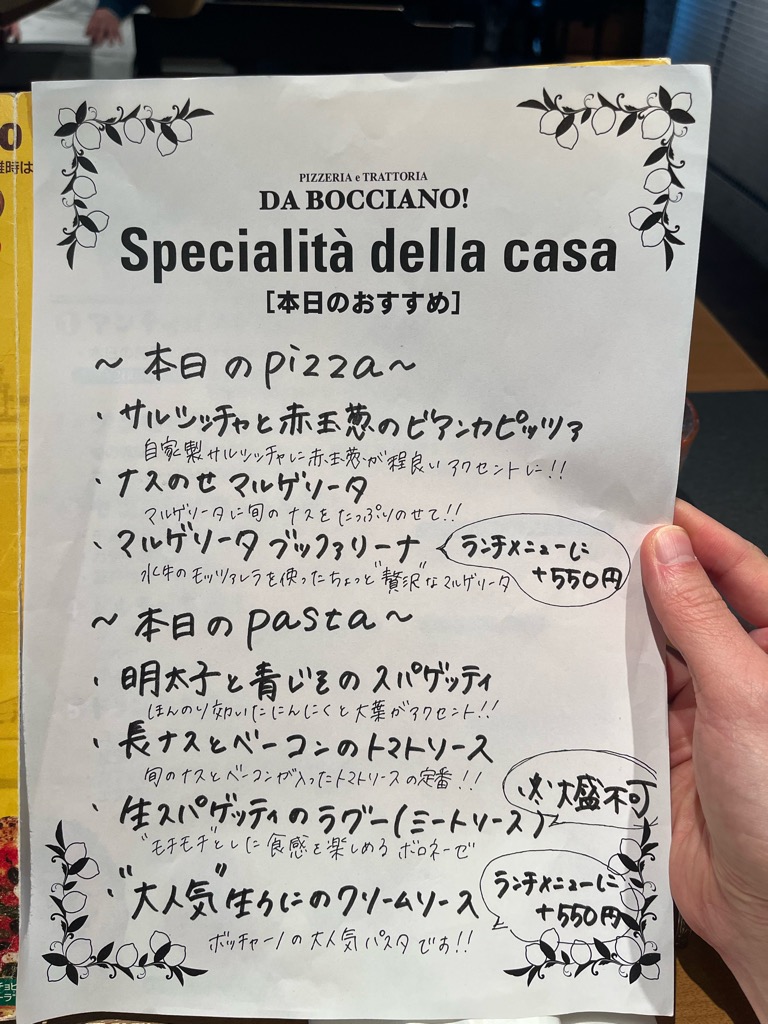 PIZZERIA e TRATTORIA
DA BOCCIANO!
Specialità della casa
[本日のおすすめ]
～ 本日のpizza～
・サルシッチャと赤玉葱のビアンカピッツァ
自家製サルシッチャに赤玉葱が程良いアクセントに!!
・ナスのせマルゲリータ
マルゲリータに旬のナスをたっぷりのせて!!
・マルゲリータブッファリーナ
ランチメニューに
+550円
水牛のモッツァレラを使ったちょっと"贅沢"なマルゲリータ
～本日のpasta～
・明太子と青じそのスパゲッティ
ほんのり効いたにんにくと大葉がアクセント!!
・長ナスとベーコンのトマトソース
旬のナスとベーコンが入ったトマトソースの定番!!
※大盛不可
・生スパゲッティのラグー(ミートソース)
"モチモチ"とした食感を楽しめるボロネーゼ
・"大人気"生うにのクリームソース
ランチメニューに
+550円
ボッチャーノの大人気パスタです!!